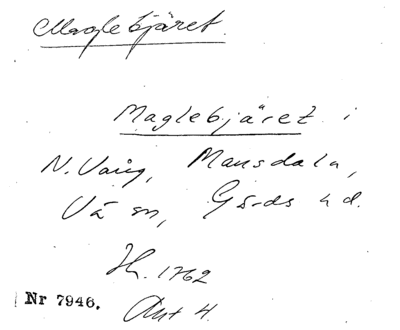 Maglebjäret.
Maglebjäret i
N. Vång, Mansdala,
Vä sn, Gärds hd.
Jh. 1762
Nr 7946. Akt 4.